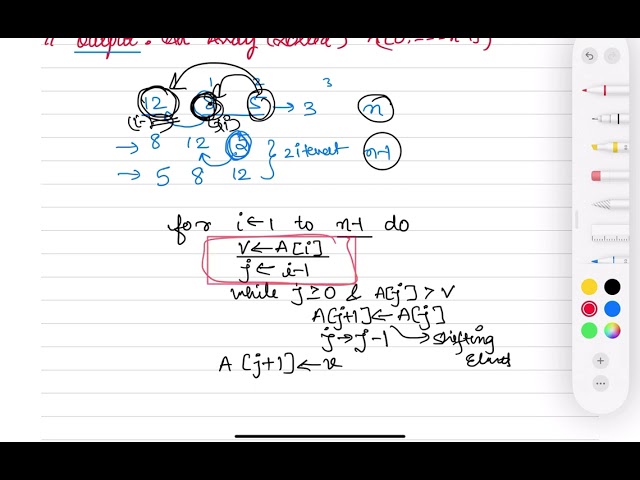 Output: An Array (Sorted) A[0, ---- n-1]
1 2 3
12 8 5 → 3 n
(i-1) (i)
→ 8 12 5 } 2 iterat n-1
→ 5 8 12
for i ← 1 to n-1 do
v ← A[i]
j ← i-1
while j ≥ 0 & A[j] > v
A[j+1] ← A[j]
j → j-1 → shifting
A[j+1] ← v